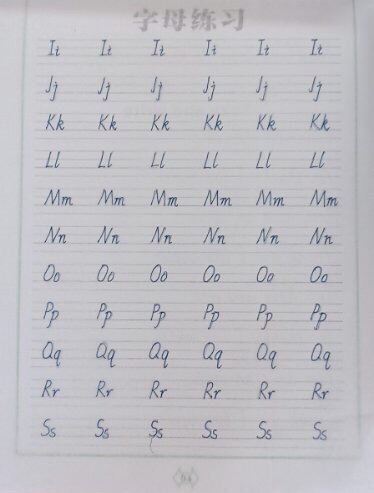 字母练习
Ii Ii Ii Ii Ii Ii
Jj Jj Jj Jj Jj Jj
Kk Kk Kk Kk Kk Kk
Ll Ll Ll Ll Ll Ll
Mm Mm Mm Mm Mm Mm
Nn Nn Nn Nn Nn Nn
Oo Oo Oo Oo Oo Oo
Pp Pp Pp Pp Pp Pp
Qq Qq Qq Qq Qq Qq
Rr Rr Rr Rr Rr Rr
Ss Ss Ss Ss Ss Ss